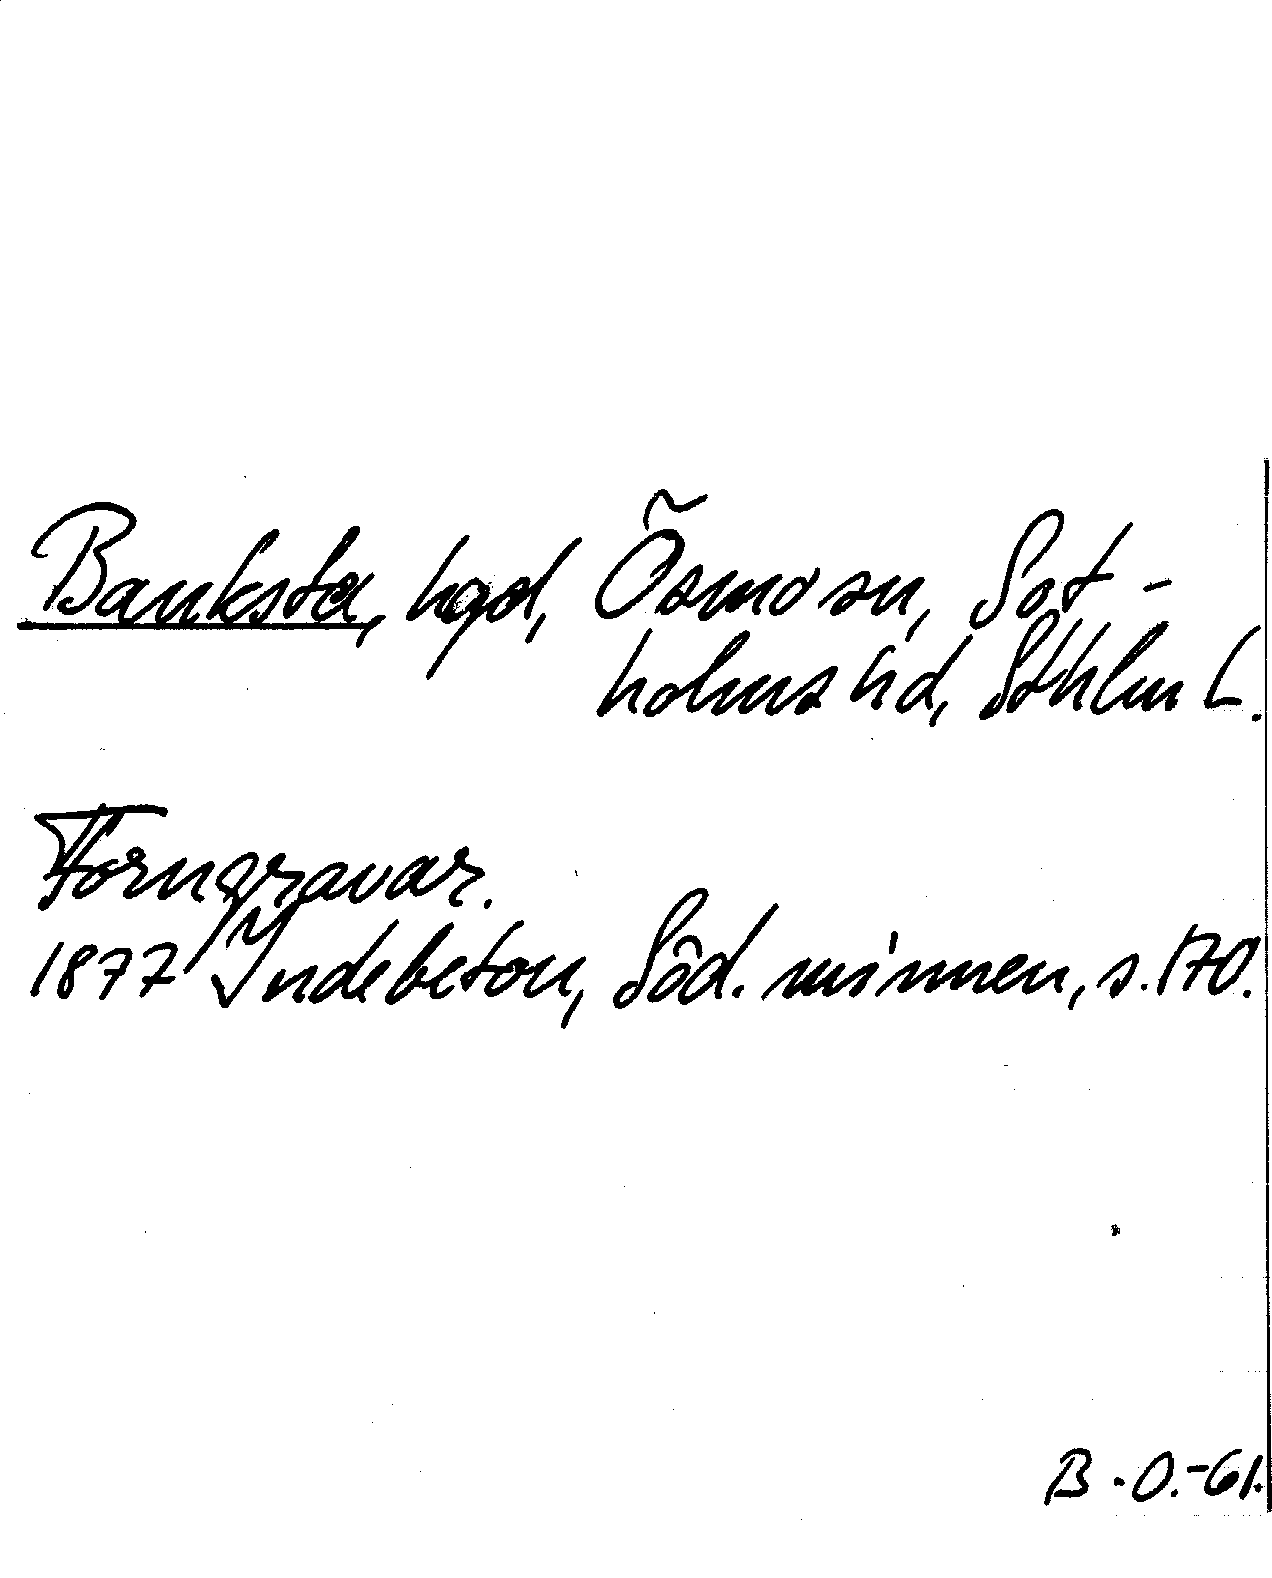 Banksta, hgd, Ösmo sn, Sot-
holms hd, Sthlm L.
Forngravar.
1877 Indebetou, Söd. minnen, s. 170.
B. O. -61.